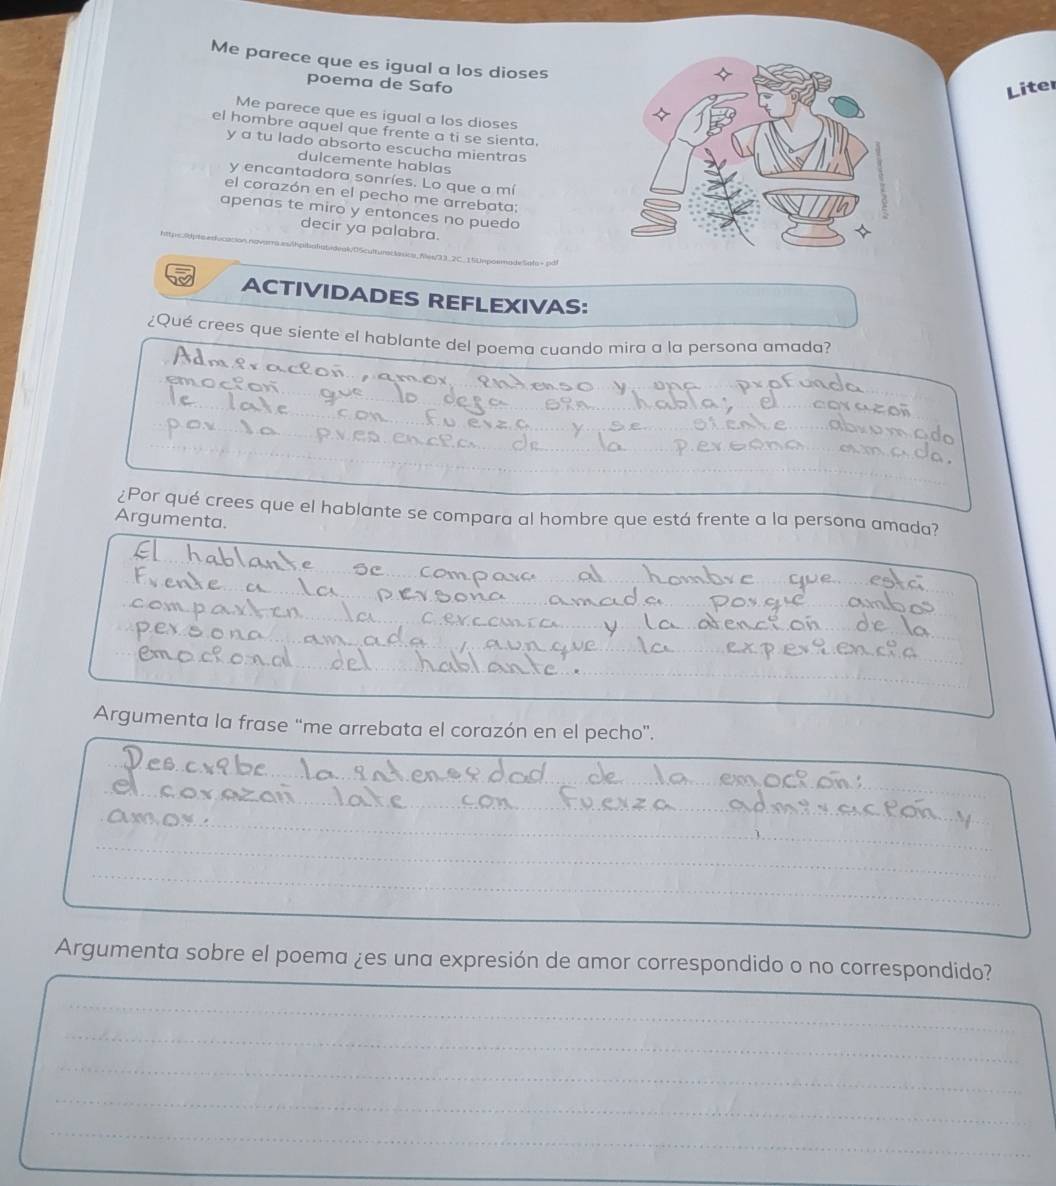 Me parece que es igual a los dioses
poema de Safo
Liter
Me parece que es igual a los dioses
el hombre aquel que frente a ti se sienta,
y a tu lado absorto escucha mientras
dulcemente hablas
y encantadora sonríes. Lo que a mí
el corazón en el pecho me arrebata;
apenas te miro y entonces no puedo
decir ya palabra.
ACTIVIDADES REFLEXIVAS:
¿Qué crees que siente el hablante del poema cuando mira a la persona amada?
Admiración, amor intenso y una profunda
emoción que lo deja sin habla; el corazón
le late con fuerza y se siente abrumado
por la presencia de la persona amada.
¿Por qué crees que el hablante se compara al hombre que está frente a la persona amada?
Argumenta.
El hablante se compara al hombre que está
Frente a la persona amada porque ambos
comparten la cercanía y la atención de la
persona amada, aunque la experiencia
emocional del hablante.
Argumenta la frase “me arrebata el corazón en el pecho”.
Describe la intensidad de la emoción;
el corazón late con fuerza admiración y
amor.
Argumenta sobre el poema ¿es una expresión de amor correspondido o no correspondido?